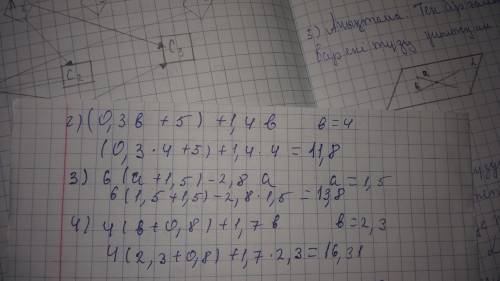 C₂
C₃
3) Аксиома.
a
2) (0,3 в + 5) + 1,4 в в = 4
(0,3 · 4 + 5) + 1,4 · 4 = 11,8
3) 6 (a + 1,5) - 2,8 a a = 1,5
6 (1,5 + 1,5) - 2,8 · 1,5 = 13,8
4) 4 (в + 0,8) + 1,7 в в = 2,3
4 (2,3 + 0,8) + 1,7 · 2,3 = 16,31